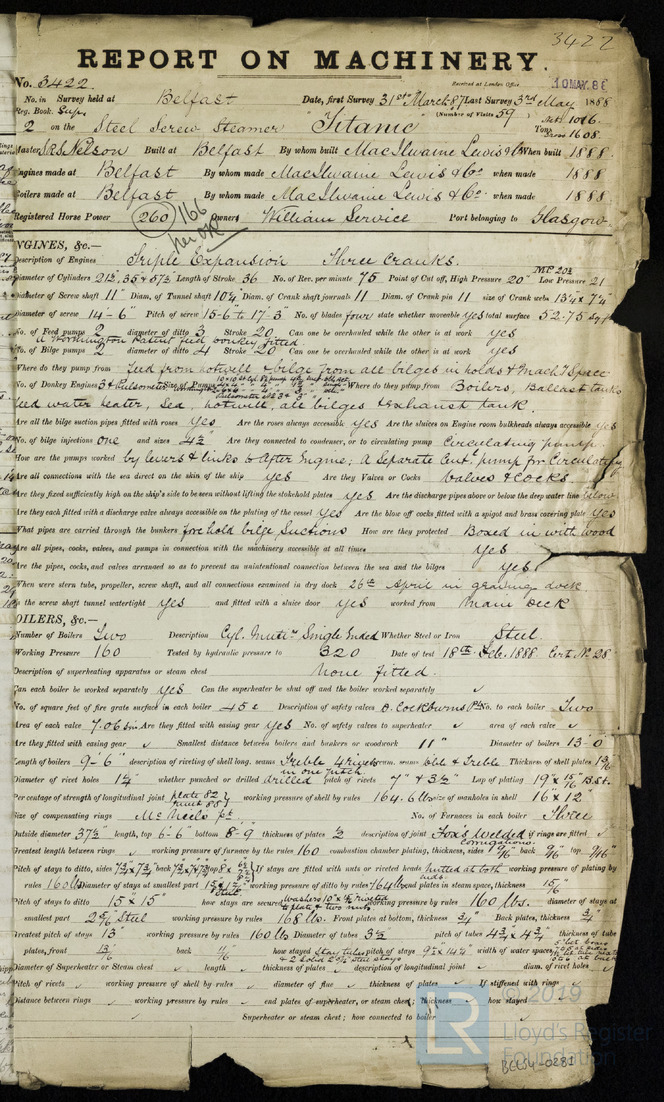 3422
REPORT ON MACHINERY.
No. 3422.
Received at London Office 10 MAY. 88
No. in Survey held at Belfast Date, first Survey 31st March 87 Last Survey 3rd May 1888
Reg. Book. Sup. (Number of Visits 59)
2 on the Steel Screw Steamer "Titanic" Tons Net 1016. Gross 1608.
Master Nelson Built at Belfast By whom built MacIlwaine Lewis & Co When built 1888.
Engines made at Belfast By whom made MacIlwaine Lewis & Co. when made 1888
Boilers made at Belfast By whom made MacIlwaine Lewis & Co. when made 1888.
Registered Horse Power 260 166 Owners William Service Port belonging to Glasgow.
ENGINES, &c.—
Description of Engines Triple Expansion Three Cranks.
Diameter of Cylinders 21½, 35 & 57½ Length of Stroke 36 No. of Rev. per minute 75 Point of Cut off, High Pressure 20" MP 20¾ Low Pressure 21
Diameter of Screw shaft 11" Diam. of Tunnel shaft 10¼ Diam. of Crank shaft journals 11 Diam. of Crank pin 11 size of Crank webs 13¼ x 7¼
Diameter of screw 14-6" Pitch of screw 15-6 to 17-3" No. of blades four state whether moveable yes total surface 52.75 sq ft
No. of Feed pumps 2 diameter of ditto 3 Stroke 20 Can one be overhauled while the other is at work yes
A Worthington Patent feed donkey fitted
No. of Bilge pumps 2 diameter of ditto 4 Stroke 20 Can one be overhauled while the other is at work yes
Where do they pump from Feed from hotwell & bilge from all bilges in holds & Mach'y Space
No. of Donkey Engines 3 & Pulsometer Size of Pumps Where do they pump from Boilers, Ballast tanks
feed water heater, Sea, hotwell, all bilges & exhaust tank.
Are all the bilge suction pipes fitted with roses yes Are the roses always accessible yes Are the sluices on Engine room bulkheads always accessible yes
No. of bilge injections one and sizes 4½ Are they connected to condenser, or to circulating pump Circulating pump.
How are the pumps worked by levers & links to After Engine; a Separate Cent. pump for Circulating
Are all connections with the sea direct on the skin of the ship yes Are they Valves or Cocks valves & cocks.
Are they fixed sufficiently high on the ship's side to be seen without lifting the stokehold plates yes Are the discharge pipes above or below the deep water line below
Are they each fitted with a discharge valve always accessible on the plating of the vessel yes Are the blow off cocks fitted with a spigot and brass covering plate yes
What pipes are carried through the bunkers forehold bilge suctions How are they protected Boxed in with wood
Are all pipes, cocks, valves, and pumps in connection with the machinery accessible at all times yes
Are the pipes, cocks, and valves arranged so as to prevent an unintentional connection between the sea and the bilges yes
When were stern tube, propeller, screw shaft, and all connections examined in dry dock 26th April in graving dock.
Is the screw shaft tunnel watertight yes and fitted with a sluice door yes worked from Main Deck
BOILERS, &c.—
Number of Boilers Two Description Cyl. Mult. Single Ended Whether Steel or Iron Steel.
Working Pressure 160 Tested by hydraulic pressure to 320 Date of test 18th Feb. 1888. Cert. No. 28.
Description of superheating apparatus or steam chest None fitted.
Can each boiler be worked separately yes Can the superheater be shut off and the boiler worked separately
No. of square feet of fire grate surface in each boiler 45 Description of safety valves D. Cockburns Pt. No. to each boiler Two
Area of each valve 7.06 Are they fitted with easing gear yes No. of safety valves to superheater area of each valve
Are they fitted with easing gear Smallest distance between boilers and bunkers or woodwork 11" Diameter of boilers 13'-0"
Length of boilers 9'-6" description of riveting of shell long. seams Treble 4 rivets in one pitch circum. seams Dble & Treble Thickness of shell plates
Diameter of rivet holes 1¼" whether punched or drilled drilled pitch of rivets 7" & 3½" Lap of plating 19" x 15/16
Percentage of strength of longitudinal joint plate 82 rivet 88 working pressure of shell by rules 164.6 lbs size of manholes in shell 16" x 12"
Size of compensating rings McNeels pt. No. of Furnaces in each boiler Three
Outside diameter 37½" length, top 6'-6" bottom 8'-9 thickness of plates ½ description of joint Fox's Welded Corrugations. if rings are fitted
Greatest length between rings working pressure of furnace by the rules 160 combustion chamber plating, thickness, sides 9/16 back 9/16 top 9/16
Pitch of stays to ditto, sides 7¾ x 7¾ back top If stays are fitted with nuts or riveted heads nutted at both ends. working pressure of plating by
rules 160 lbs Diameter of stays at smallest part working pressure of ditto by rules 164 lbs end plates in steam space, thickness 15/16
Pitch of stays to ditto 15 x 15" how stays are secured Washers riveted to plate & two nuts working pressure by rules 160 lbs. diameter of stays at
smallest part 2 5/16 Steel working pressure by rules 168 lbs. Front plates at bottom, thickness ¾" Back plates, thickness ¾"
Greatest pitch of stays 13" working pressure by rules 160 lbs Diameter of tubes 3½ pitch of tubes 4¾ x 4¾ thickness of tube
plates, front 13/16 back 11/16 how stayed Stay tubes pitch of stays width of water spaces
Diameter of Superheater or Steam chest length thickness of plates description of longitudinal joint diam. of rivet holes
Pitch of rivets working pressure of shell by rules diameter of flue thickness of plates If stiffened with rings
Distance between rings working pressure by rules end plates of superheater, or steam chest; thickness how stayed
Superheater or steam chest; how connected to boiler
LR
© 2019
Lloyd's Register
Foundation